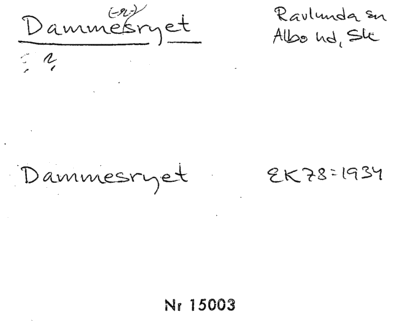 (-r-?)
Dammesryet Ravlunda sn
Albo hd, Sk
: ?
Dammesryet EK 78:1934
Nr 15003